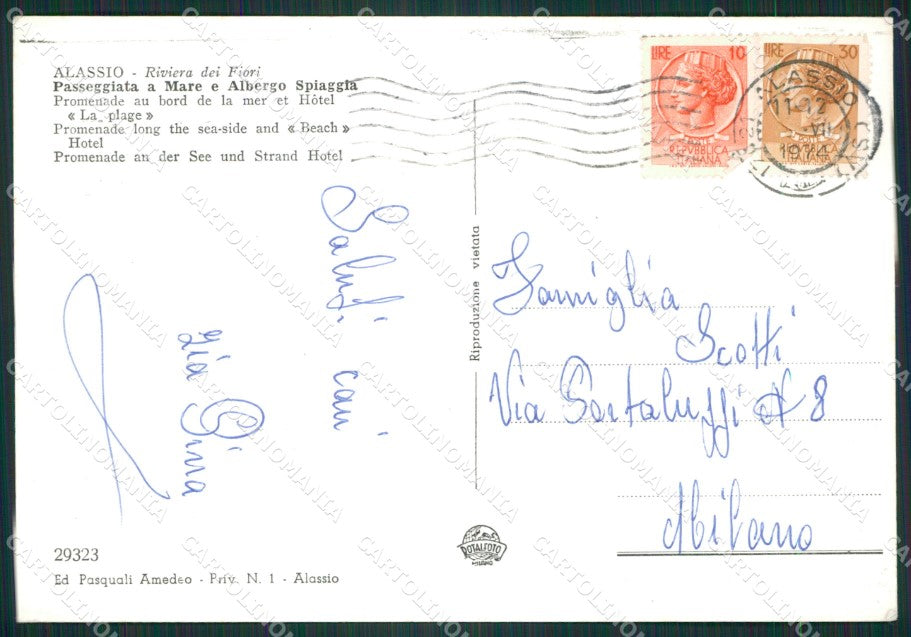 ALASSIO - Riviera dei Fiori
Passeggiata a Mare e Albergo Spiaggia
Promenade au bord de la mer et Hôtel
« La plage »
Promenade long the sea-side and « Beach »
Hotel
Promenade an der See und Strand Hotel
LIRE 10
REPVBBLICA
ITALIANA
LIRE 30
REPVBBLICA
ITALIANA
ALASSIO
11-12
VII
1974
Saluti cari
zia Gina
Riproduzione vietata
Famiglia
Scotti
Via
N 8
Milano
ROTALFOTO
MILANO
29323
Ed Pasquali Amedeo - Priv. N. 1 - Alassio
CARTOLINOMANIA